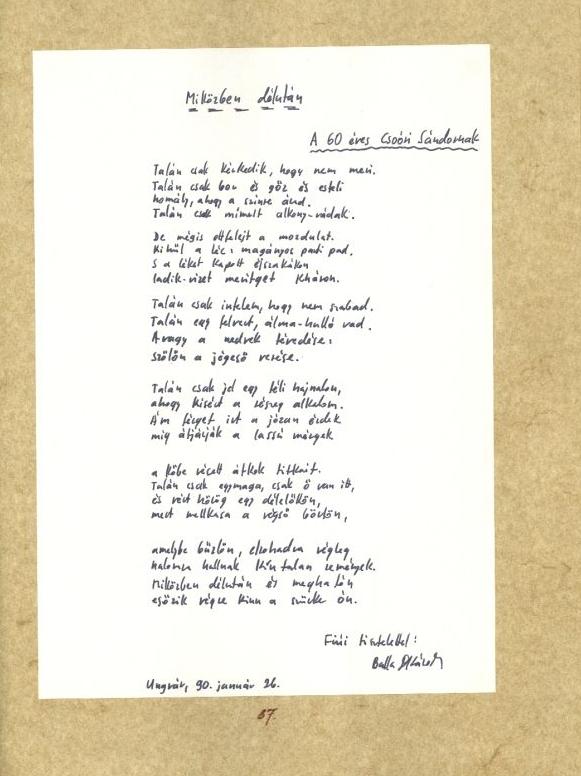 Miközben délután
A 60 éves Csoóri Sándornak
Talán csak kérkedik, hogy nem meri.
Talán csak bor és gőz és esteli
homály, ahogy a szinre árad.
Talán csak mímelt alkony-vádak.
De mégis ottfelejt a mozdulat.
Kihűl a léc: magányos parti pad.
S a léket kapott éjszakákon
ladik-vizet merítget Kháron.
Talán csak intelem, hogy nem szabad.
Talán egy felvert, álma-hulló vad.
Avagy a nedvek tévedése:
szőlőn a jégeső verése.
Talán csak jel egy téli hajnalon,
ahogy kisért a részeg alkalom.
Ám férget irt a józan érdek
mig átjárják a lassú mérgek
a kőbe vésett átkok titkait.
Talán csak egymaga, csak ő van itt,
és vért hörög egy délelőtön,
mert mellkasa a végső börtön,
amelybe bűzlőn, elrohadva végleg
halomra hullnak kéntalan remények.
Miközben délután és meghatón
esőzik végre kinn a szürke ón.
Fiúi tisztelettel:
Balla D. Károly
Ungvár, 90. január 26.
67.